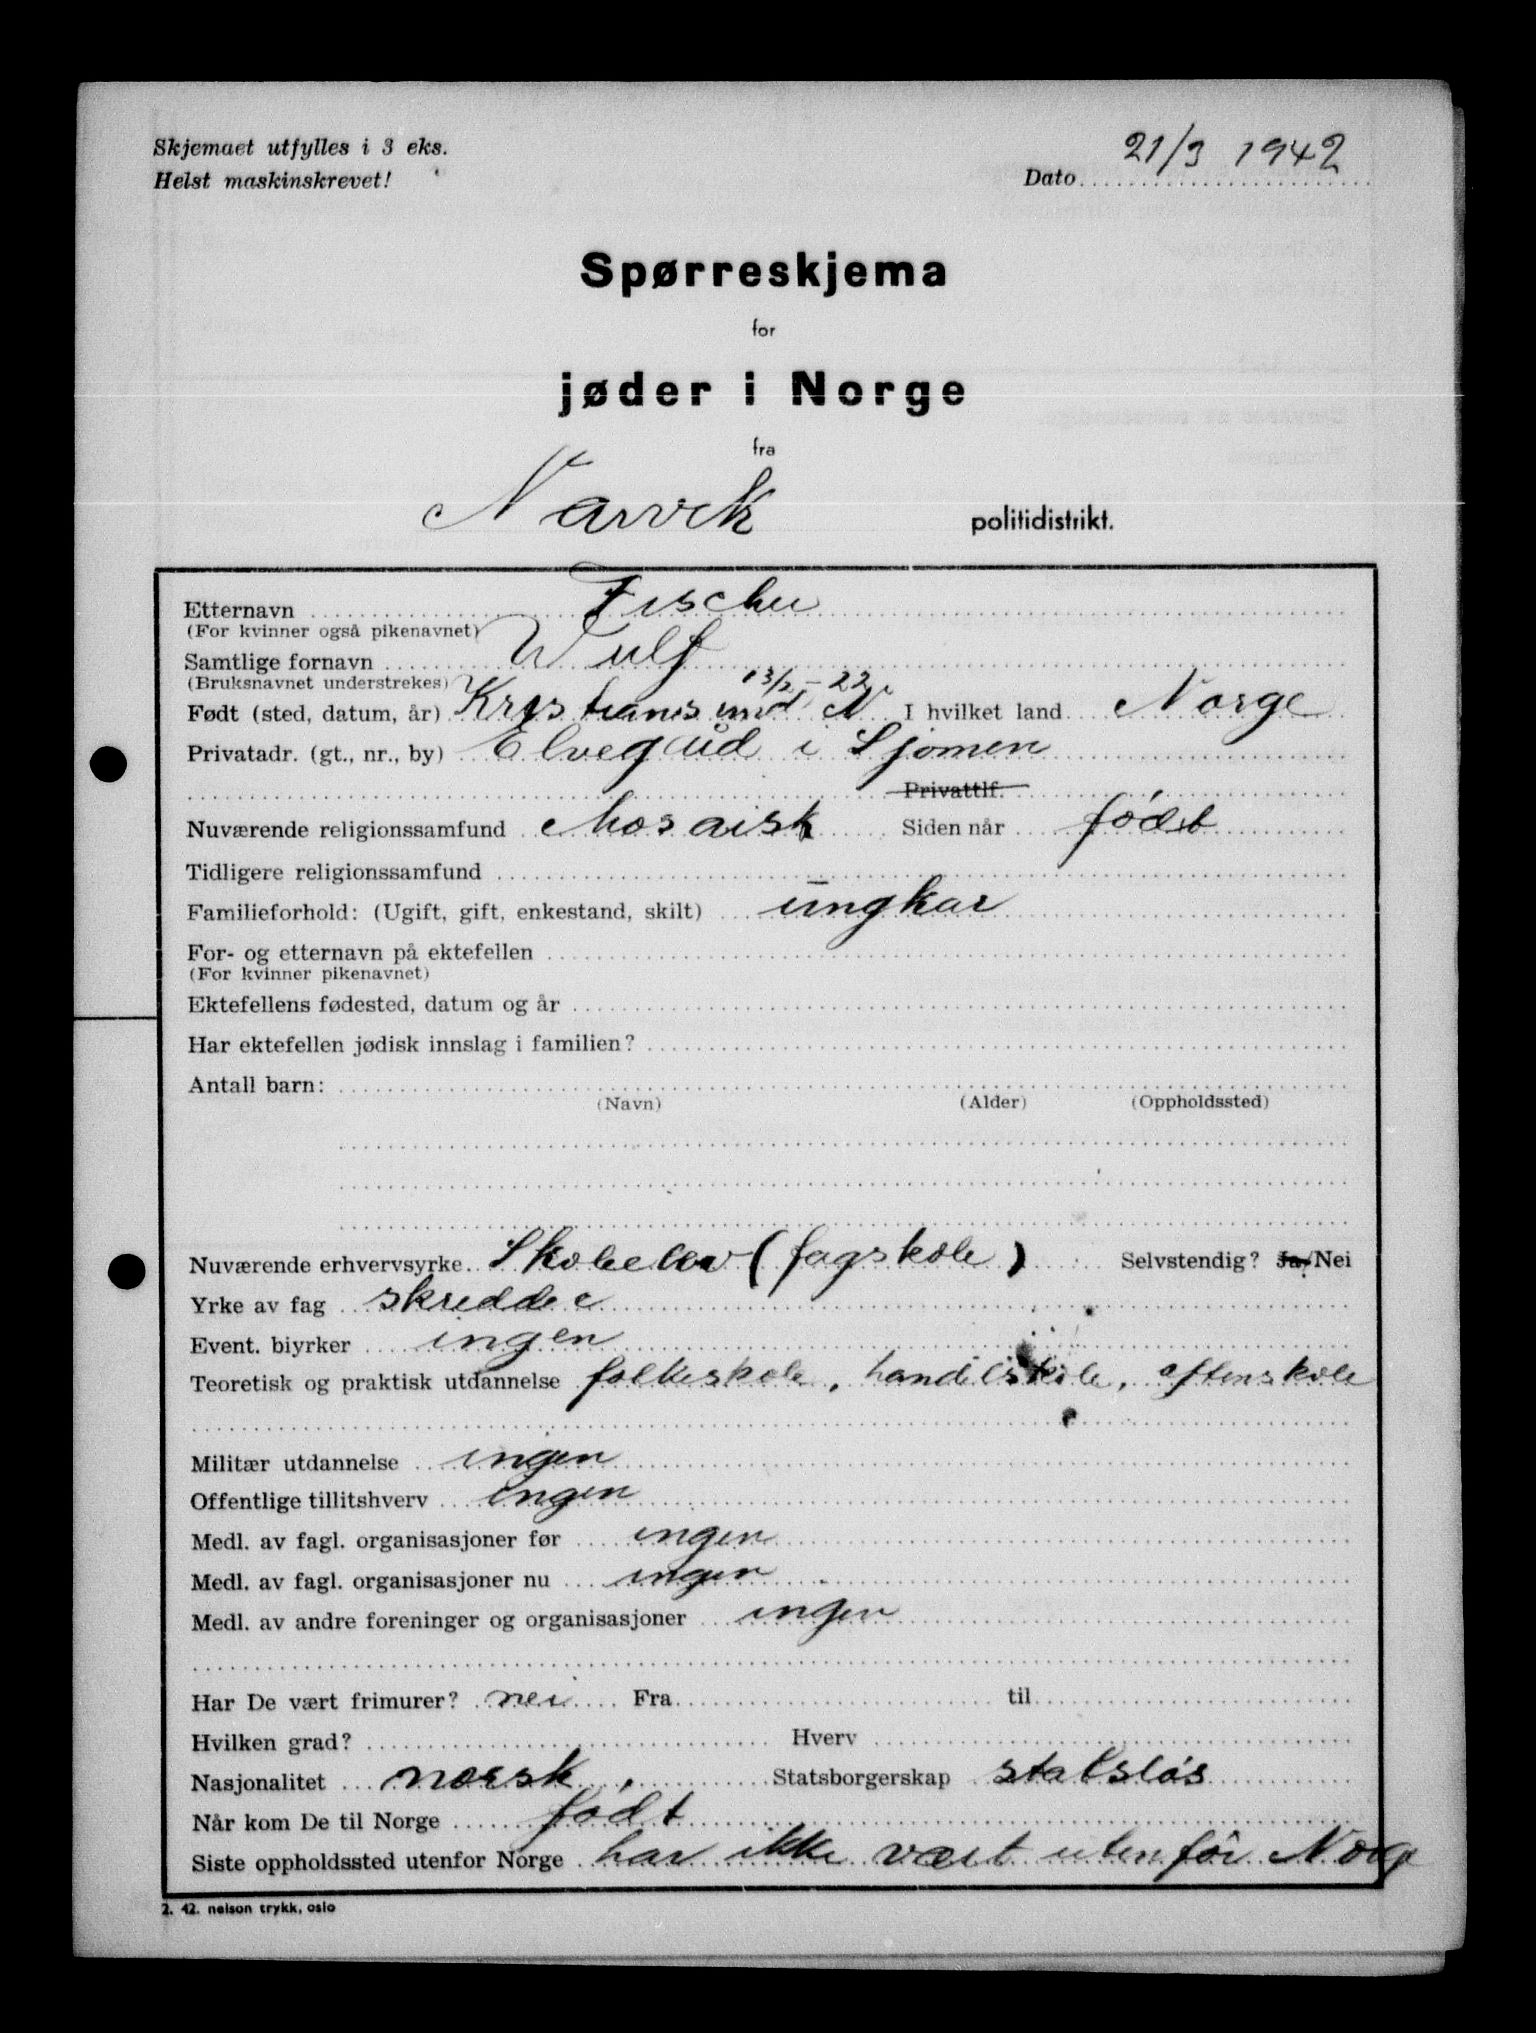 Skjemaet utfylles i 3 eks.
Helst maskinskrevet!
Dato 21/3 1942
Spørreskjema
for
jøder i Norge
fra
Narvik politidistrikt.
Etternavn Fischer
(For kvinner også pikenavnet)
Samtlige fornavn Wulf
(Bruksnavnet understrekes)
Født (sted, datum, år) Kristiansund N 13/2 - 22 I hvilket land Norge
Privatadr. (gt., nr., by) Elvegård i Sjømen
Privattlf.
Nuværende religionssamfund Mosaisk Siden når født
Tidligere religionssamfund
Familieforhold: (Ugift, gift, enkestand, skilt) ungkar
For- og etternavn på ektefellen
(For kvinner pikenavnet)
Ektefellens fødested, datum og år
Har ektefellen jødisk innslag i familien?
Antall barn:
(Navn) (Alder) (Oppholdssted)
Nuværende erhvervsyrke Skoleelev (fagskole) Selvstendig? Ja/Nei
Yrke av fag skredder
Event. biyrker ingen
Teoretisk og praktisk utdannelse folkeskole, handelskole, aftenskole
Militær utdannelse ingen
Offentlige tillitshverv ingen
Medl. av fagl. organisasjoner før ingen
Medl. av fagl. organisasjoner nu ingen
Medl. av andre foreninger og organisasjoner ingen
Har De vært frimurer? nei Fra til
Hvilken grad? Hverv
Nasjonalitet norsk. Statsborgerskap statsløs
Når kom De til Norge født
Siste oppholdssted utenfor Norge har ikke vært utenfor Norge
2. 42. nelson trykk, oslo